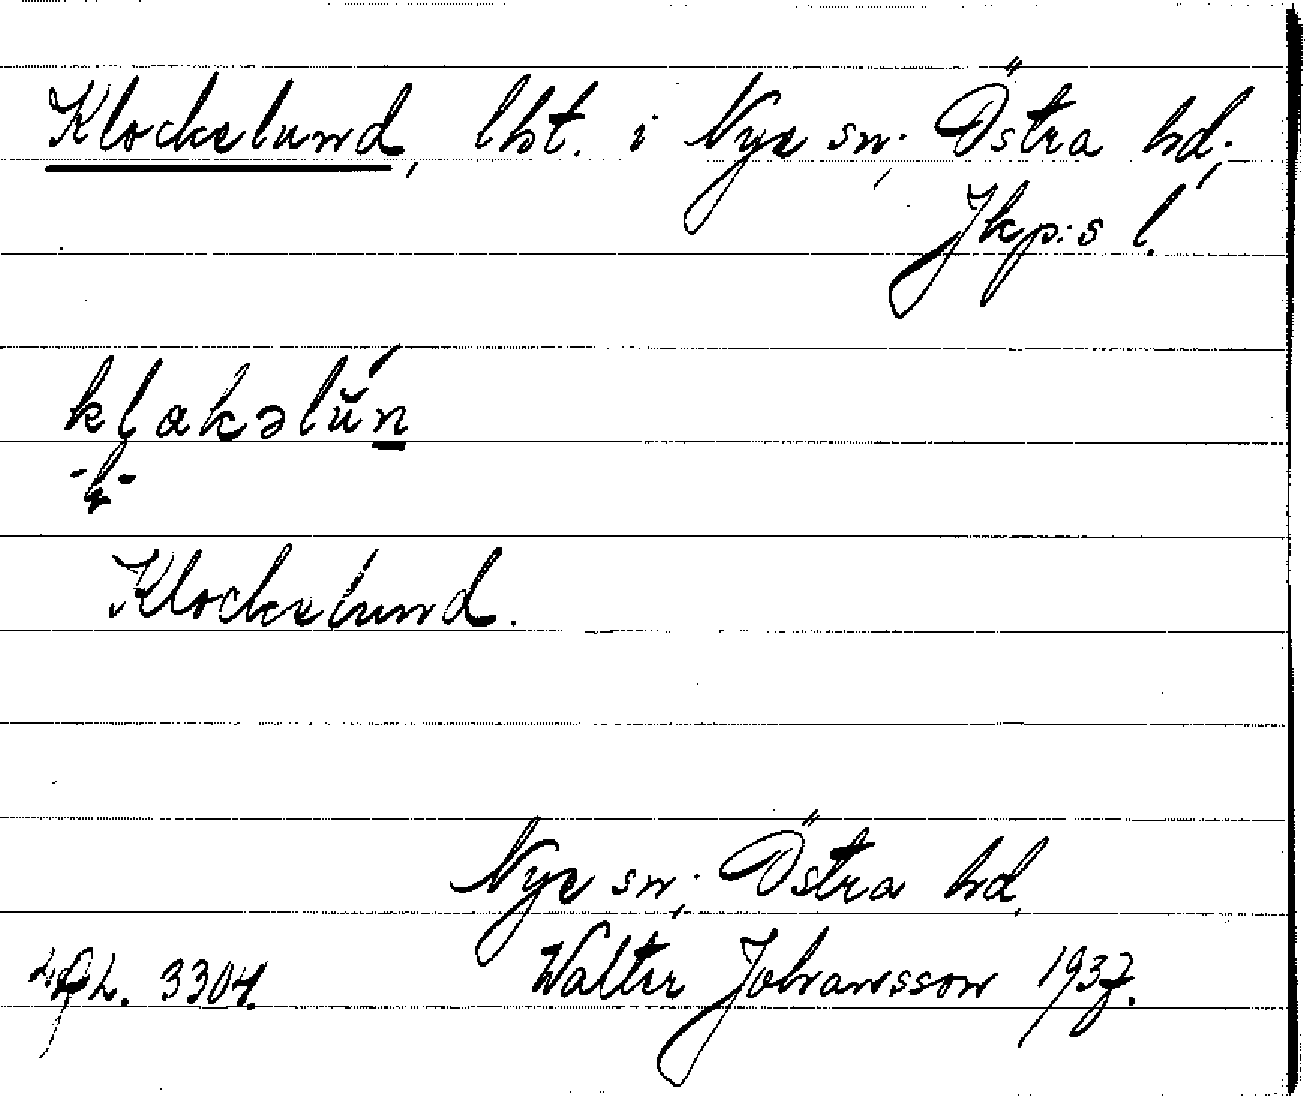 Klockelund, lht. i Nye sn; Östra hd;
Jkp:s l.
klakəlún
-l-
Klockelund.
Nye sn; Östra hd,
3304. Walter Johansson 1937.